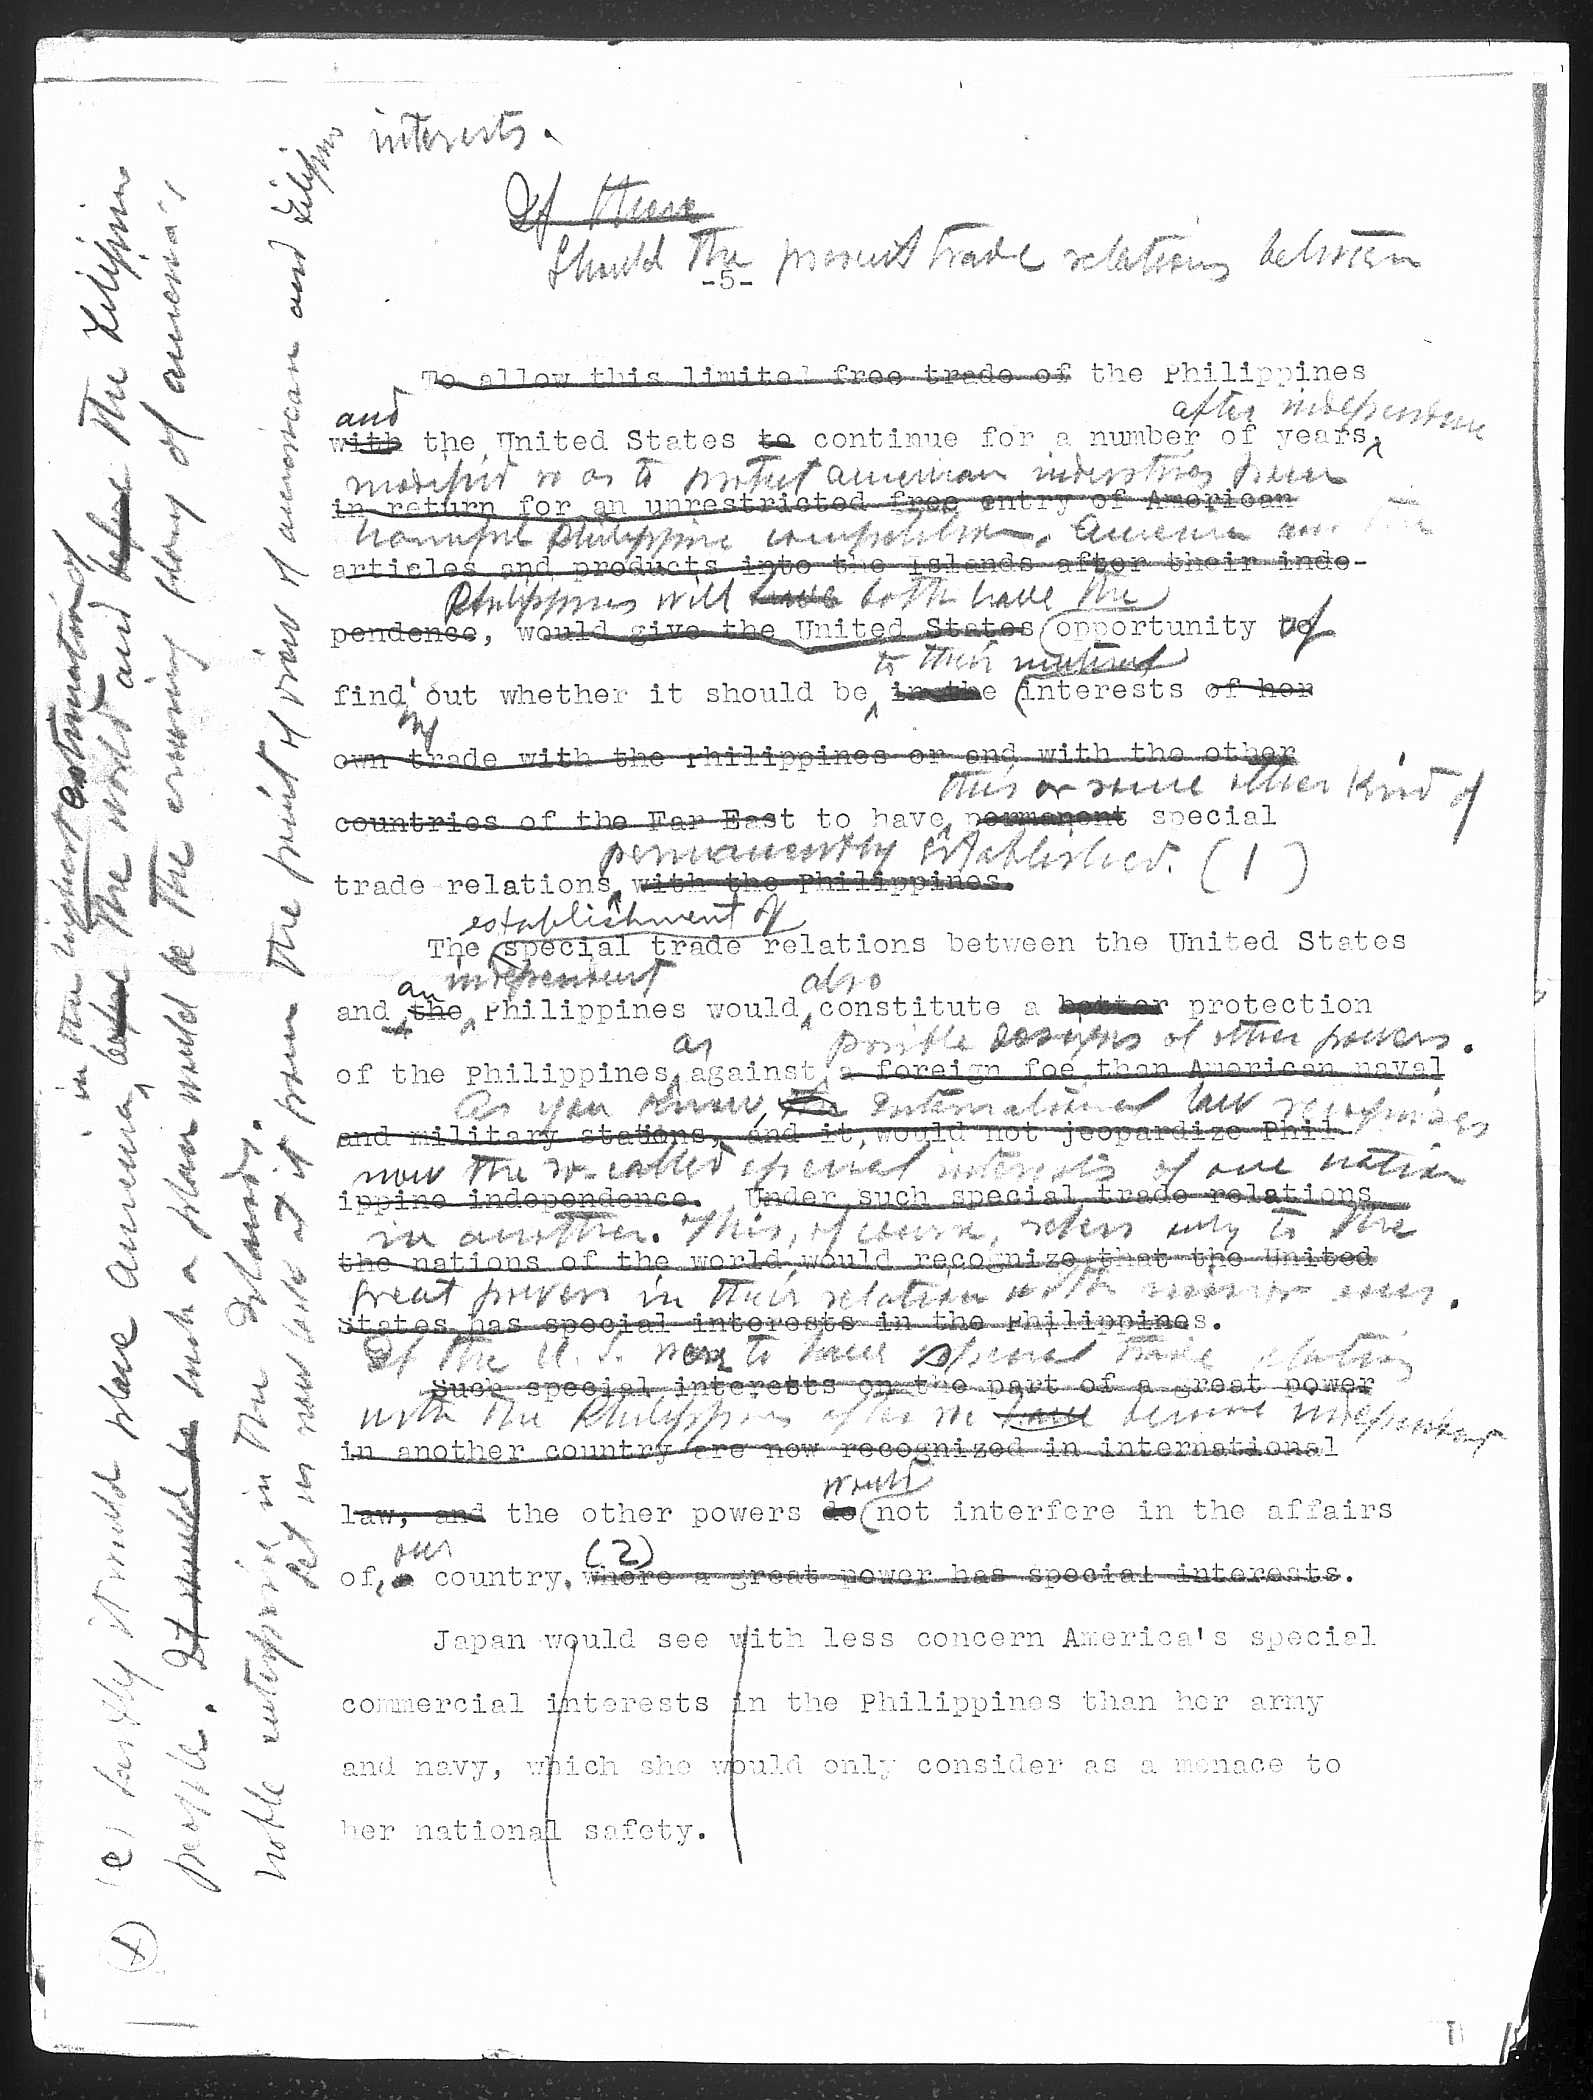 interests.
If these
Should the present trade relations between
-5-
To allow this limited free trade of the Philippines
and after independence
with the United States to continue for a number of years,
modified so as to protect American industries from
in return for an unrestricted free entry of American
harmful Philippine competition. America and the
articles and products into the Islands after their inde-
Philippines will have both have the
pendence, would give the United States opportunity to of
to their mutual
find out whether it should be in the interests of her
own trade with the Philippines or and with the other
this or some other kind of
countries of the Far East to have permanent special
permanently established. (1)
trade relations with the Philippines.
establishment of
The special trade relations between the United States
an independent also
and the Philippines would constitute a better protection
as possible designs of other powers.
of the Philippines against a foreign foe than American naval
As you know, the International law recognizes
and military stations, and it would not jeopardize Phil-
now the so-called special interests of one nation
ippine independence. Under such special trade relations
in another. This, of course, refers only to the
the nations of the world would recognize that the United
great powers in their relation with minor ones.
States has special interests in the Philippines.
If the U. S. were to have special trade relations
Such special interests on the part of a great power
with the Philippines after we have become independent
in another country are now recognized in international
would
law, and the other powers do not interfere in the affairs
our (2)
of, a country. where a great power has special interests.
Japan would see with less concern America's special
commercial interests in the Philippines than her army
and navy, which she would only consider as a menace to
her national safety.
in the highest estimation of
lastly it would place America, before the world and before the Filipino
people. It would be such a plan would be the crowning glory of America's
noble enterprise in the Islands.
Let us now look at it from the point of view of American and Filipino